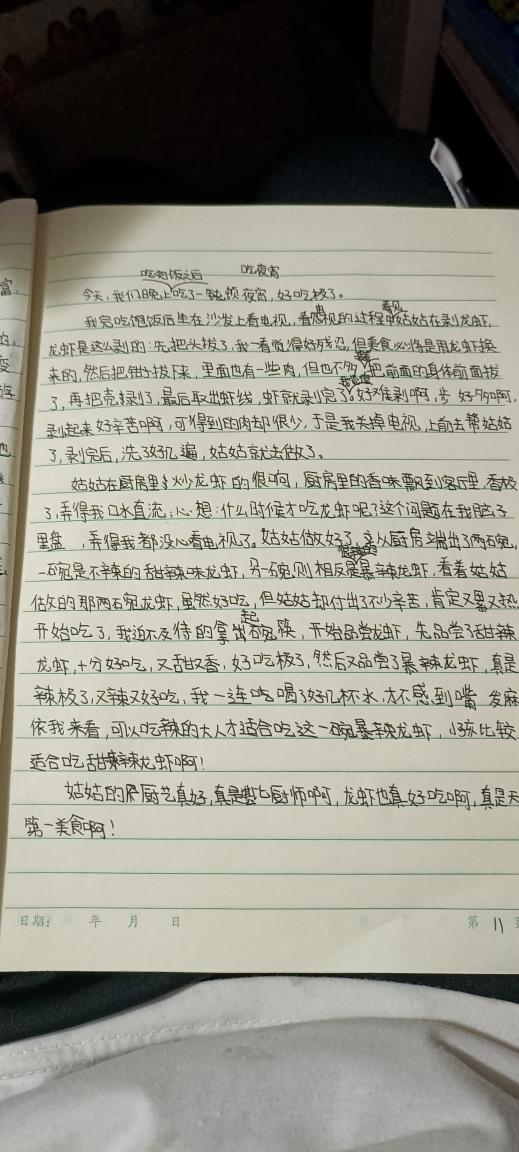 吃夜宵
吃完饭之后
今天，我们晚上吃了一顿夜宵，好吃极了。
我吃饱饭后坐在沙发上看电视，看电视的过程中看见姑姑在剥龙虾，
龙虾是这么剥的：先把头拔了，我一看觉得好残忍，但美食必将是用龙虾换
来的，然后把钳子拔下来，里面也有一些肉，但也不多，把前面的身体前面拔
了，再把壳剥了，最后取出虾线，虾就剥完了，我觉得好难剥啊，步 好多啊，
剥起来好辛苦啊，可得到的肉却很少，于是我关掉电视，上前去帮姑姑
了，剥完后，洗了好几遍，姑姑就去做了。
姑姑在厨房里炒龙虾的很响，厨房里的香味飘到客厅里，香极
了，弄得我口水直流，心想：什么时候才吃龙虾呢？这个问题在我脑子
里盘 ，弄得我都没心看电视了。姑姑做好了，从厨房端出了两碗，
一碗是不辣的甜辣味龙虾，另一碗则相反是很辣的暴辣龙虾，看着姑姑
做的那两碗龙虾，虽然好吃，但姑姑却付出了不少辛苦，肯定又累又热
开始吃了，我迫不及待的拿起碗筷，开始品尝龙虾，先品尝了甜辣
龙虾，十分好吃，又甜又香，好吃极了，然后又品尝了暴辣龙虾，真是
辣极了，又辣又好吃，我一连喝了好几杯水，才不感到嘴 发麻
依我来看，可以吃辣的大人才适合吃这一碗暴辣龙虾，小孩比较
适合吃甜辣龙虾啊！
姑姑的厨艺真好，真是 厨师啊，龙虾也真好吃啊，真是天
第一美食啊！
日期： 年 月 日
第 11 页